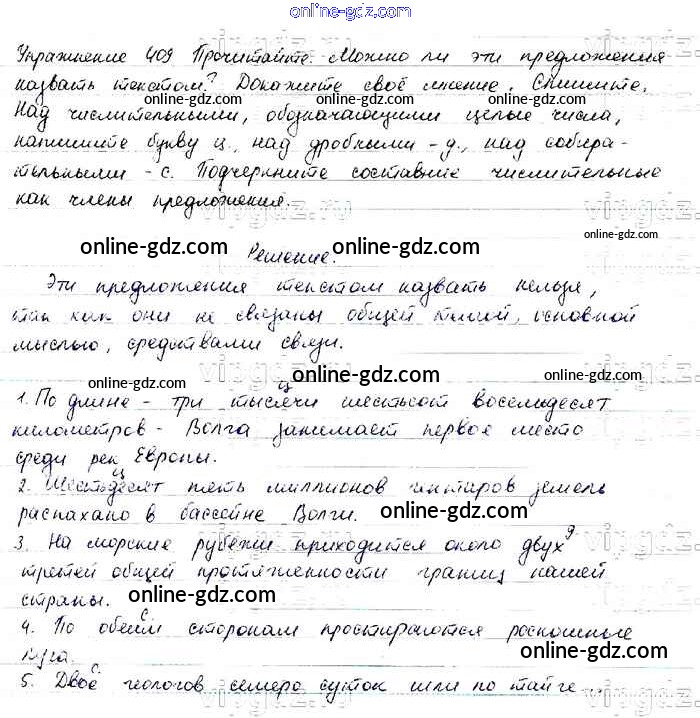 online-gdz.com
Упражнение 409 Прочитайте. Можно ли эти предложения
назвать текстом? Докажите своё мнение. Спишите.
Над числительными, обозначающими целые числа,
напишите букву ц., над дробными - д., над собира-
тельными - с. Подчеркните составные числительные
как члены предложения.
Решение.
Эти предложения текстом назвать нельзя,
так как они не связаны общей темой, основной
мыслью, средствами связи.
1. По длине - три тысячи шестьсот восемьдесят
километров - Волга занимает первое место
среди рек Европы.
2. Шестьдесят пять миллионов гектаров земель
распахано в бассейне Волги.
3. На морские рубежи приходится около двух
третей общей протяженности границ нашей
страны.
4. По обеим сторонам простираются роскошные
луга.
5. Двое геологов семеро суток шли по тайге